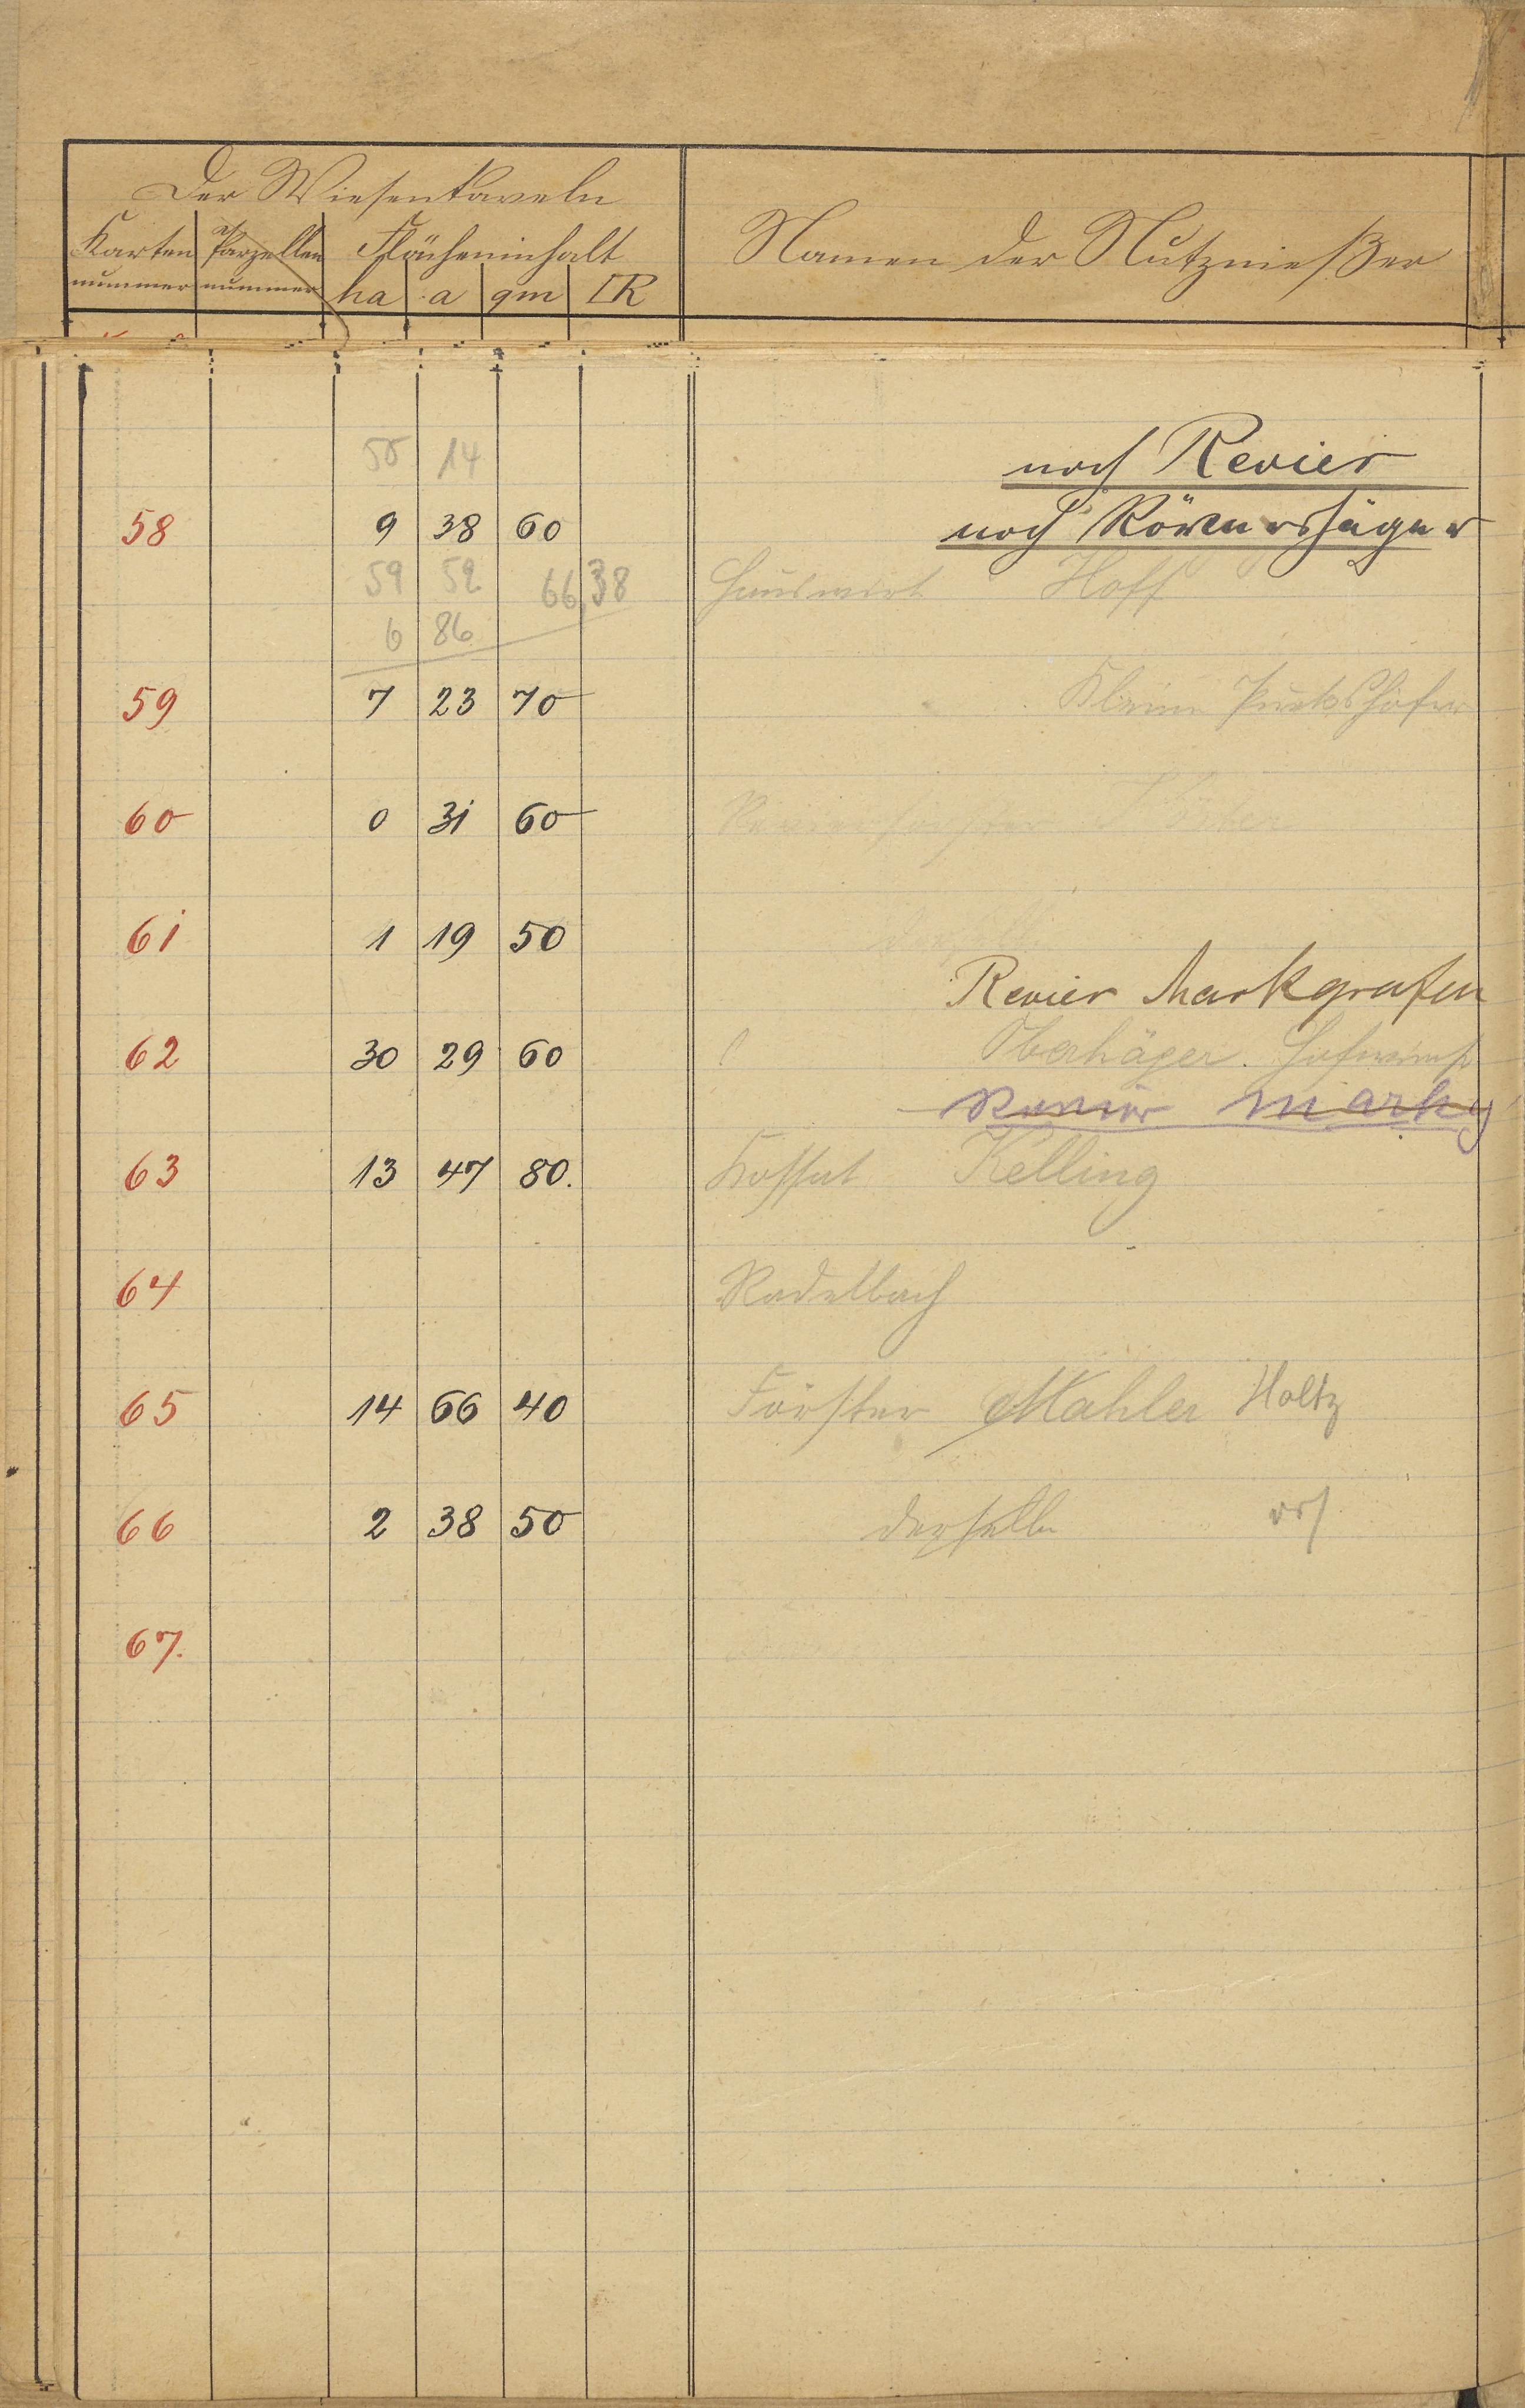 Der Wiesenkaveln
Karten Parzellen Flächeninhalt Namen der Nutznießer
nummer nummer ha a qm □R
50 14 noch Revier
58 9 38 60 noch
59 52 66,38 Hauswirt Hoff
6 86
59 7 23 70 Kleine
60 0 31 60
61 1 19 50
Revier Markgrafen
62 30 29 60
Revier Markg
63 13 47 80. Kossat Kelling
64 Radelbach
65 14 66 40 Förster Mahler Holtz
66 2 38 50 derselbe
67.